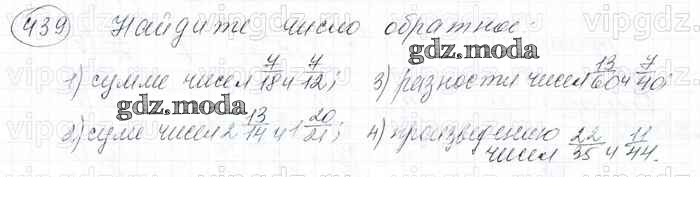 439 Найдите число обратное:
gdz.moda
1) сумме чисел 7/18 и 7/12; 3) разности чисел 13/60 и 7/40;
gdz.moda
2) суме чисел 2 13/14 и 1 20/21; 4) произведению
чисел 22/35 и 11/44.